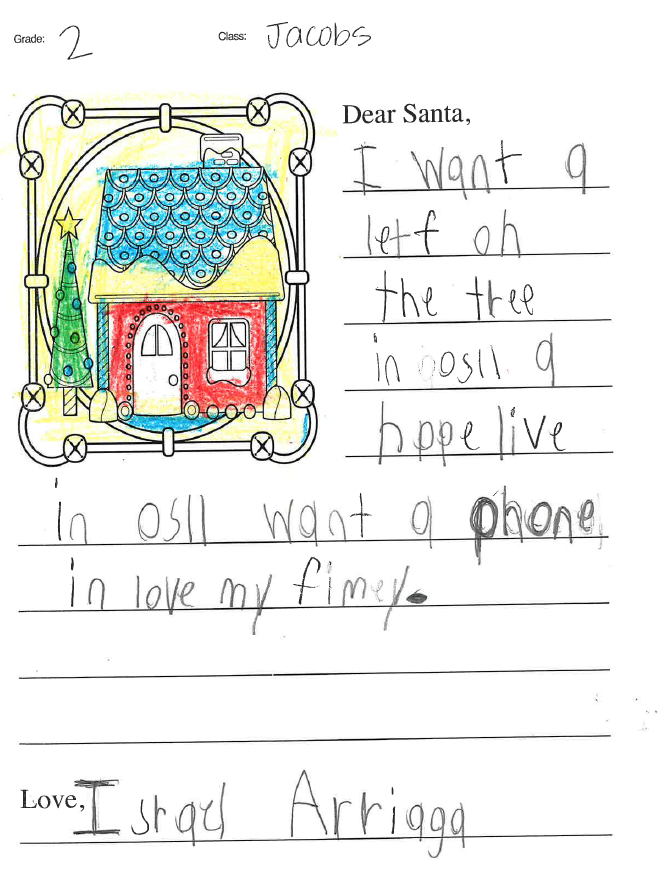 Grade: 2 Class: Jacobs
Dear Santa,
I want a
letf on
the tree
in osll a
hppe live
in osll want a phone,
in love my fimey.
Love, Israel Arriaga